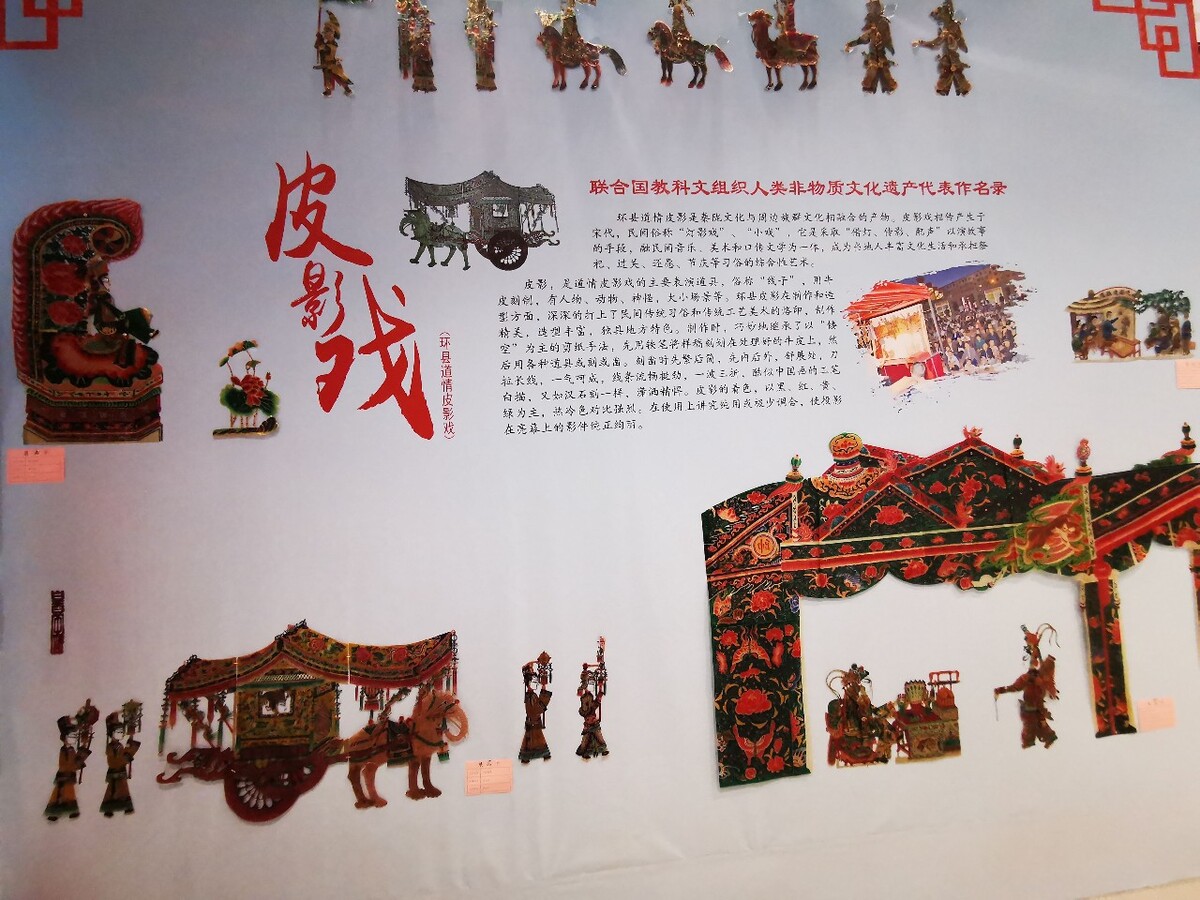 皮影戏
(环县道情皮影戏)
联合国教科文组织人类非物质文化遗产代表作名录
环县道情皮影是秦陇文化与周边族群文化相融合的产物。皮影戏相传产生于
宋代,民间俗称“灯影戏”、“小戏”,它是采取“借灯、传影、配声”以演故事
的手段,融民间音乐、美术和口传文学为一体,成为当地人丰富文化生活和承担祭
祀、过关、还愿、节庆等习俗的综合性艺术。
皮影,是道情皮影戏的主要表演道具,俗称“线子”,用牛
皮刻制,有人物、动物、神怪、大小场景等。环县皮影在制作和造
影方面,深深的打上了民间传统习俗和传统工艺美术的烙印,制作
精美,造型丰富,独具地方特色。制作时,巧妙地继承了以“镂
空”为主的剪纸手法,先用铁笔将样稿刻划在处理好的牛皮上,然
后用各种道具或刻或凿。刻凿时先繁后简,先内后外,舒展处,刀
拉长线,一气呵成,线条流畅挺劲,一波三折,酷似中国画的工笔
白描,又如汉石刻一样,浑洒精悍。皮影的着色,以黑、红、黄、
绿为主,热冷色对比强烈。在使用上讲究纯用或极少调合,使投影
在亮幕上的影件纯正绚丽。